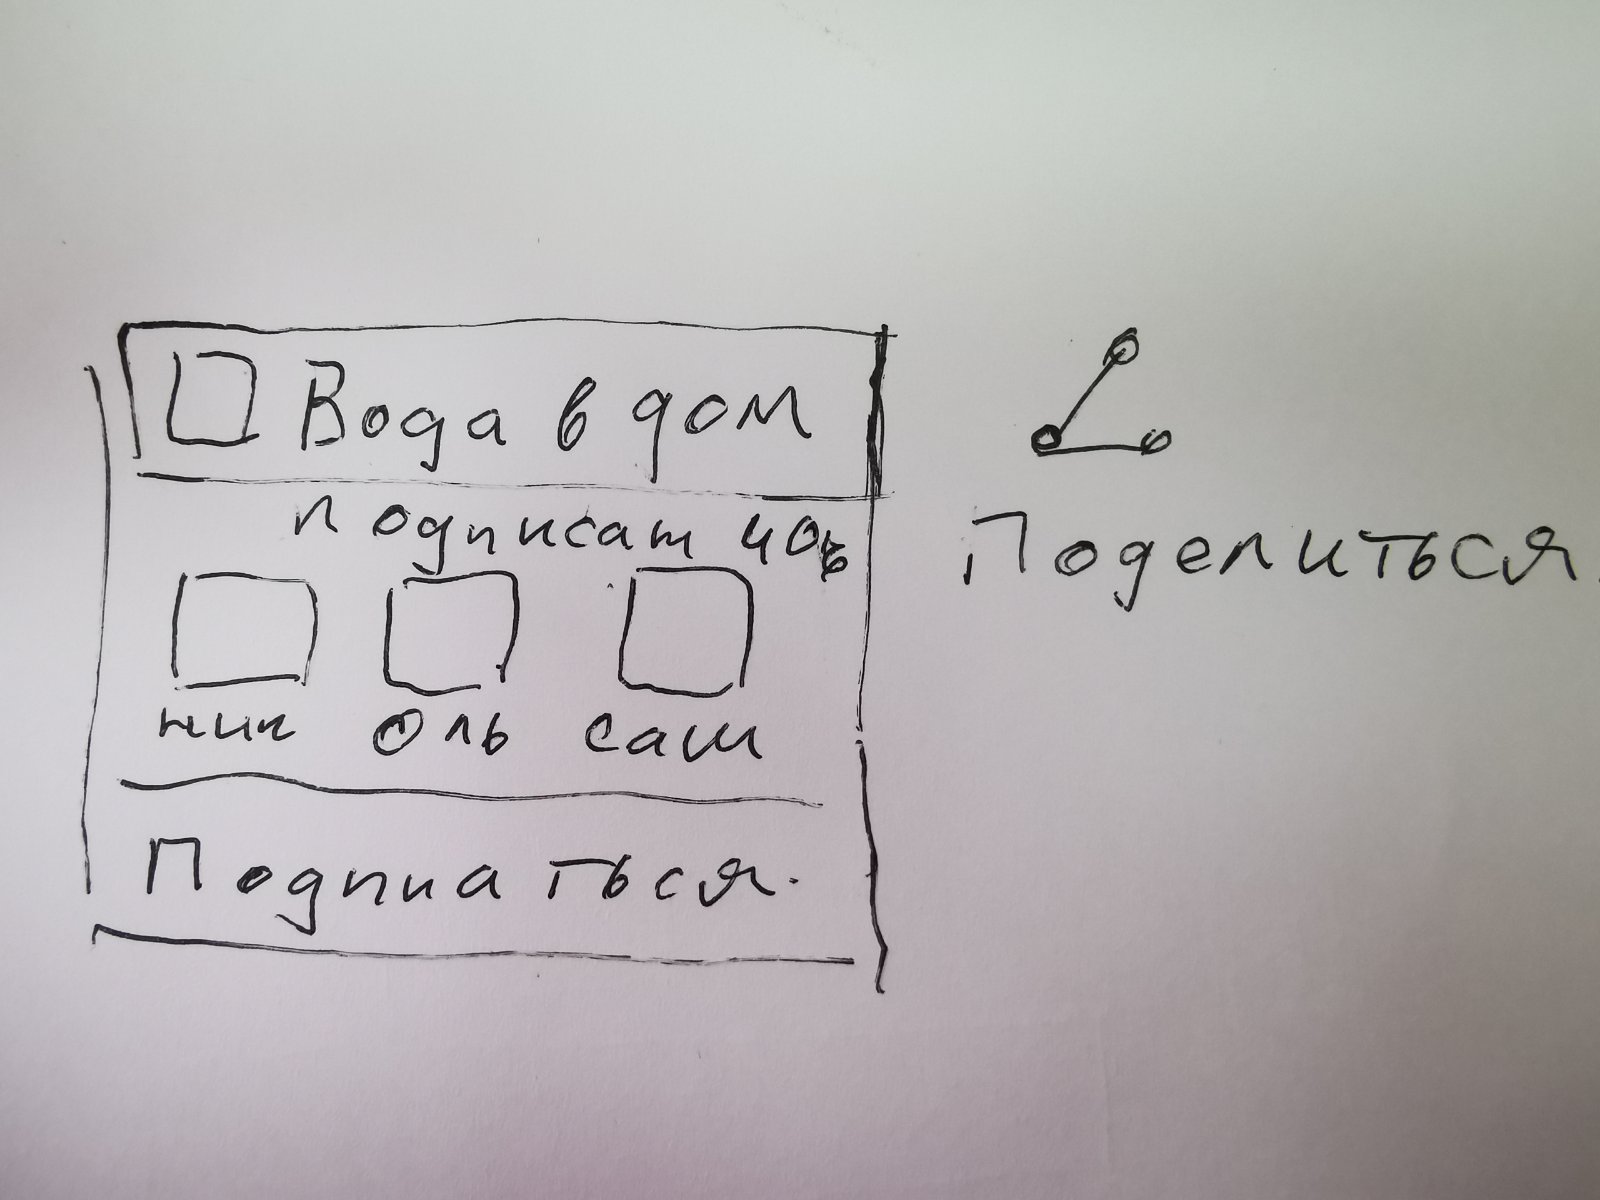 Вода в дом
Подписат 406
ник оль саш
Подпиаться.
Поделиться.